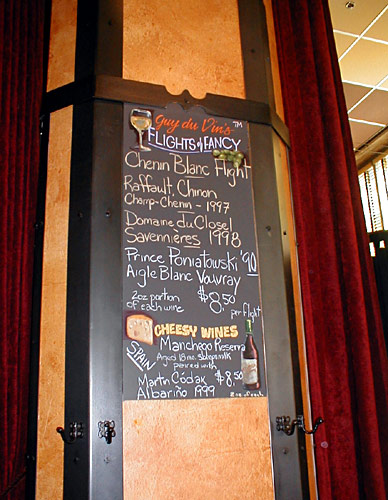 Guy du Vin's TM
FLIGHTS of FANCY
Chenin Blanc Flight
Raffault, Chinon
Champ-Chenin - 1997
Domaine du Closel
Savennieres 1998
Prince Poniatowski '90
Aigle Blanc Vouvray
2oz portion
of each wine
$8.50
per flight
CHEESY WINES
SPAIN
Manchego Reserva
Aged 18 mo. sheeps milk
paired with
Martin Códax $8.50
Albariño 1999
2 oz of each